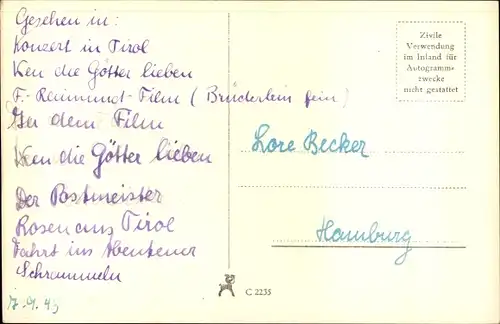 Gesehen in:
Konzert in Tirol
Wen die Götter lieben
F. Raimund-Film (Brüderlein fein)
dem Film
Wen die Götter lieben
Der Postmeister
Rosen aus Tirol
Fahrt ins Abenteuer
Schrammeln
7.9.45
Zivile
Verwendung
im Inland für
Autogramm-
zwecke
nicht gestattet
Lore Becker
Hamburg
C 2235